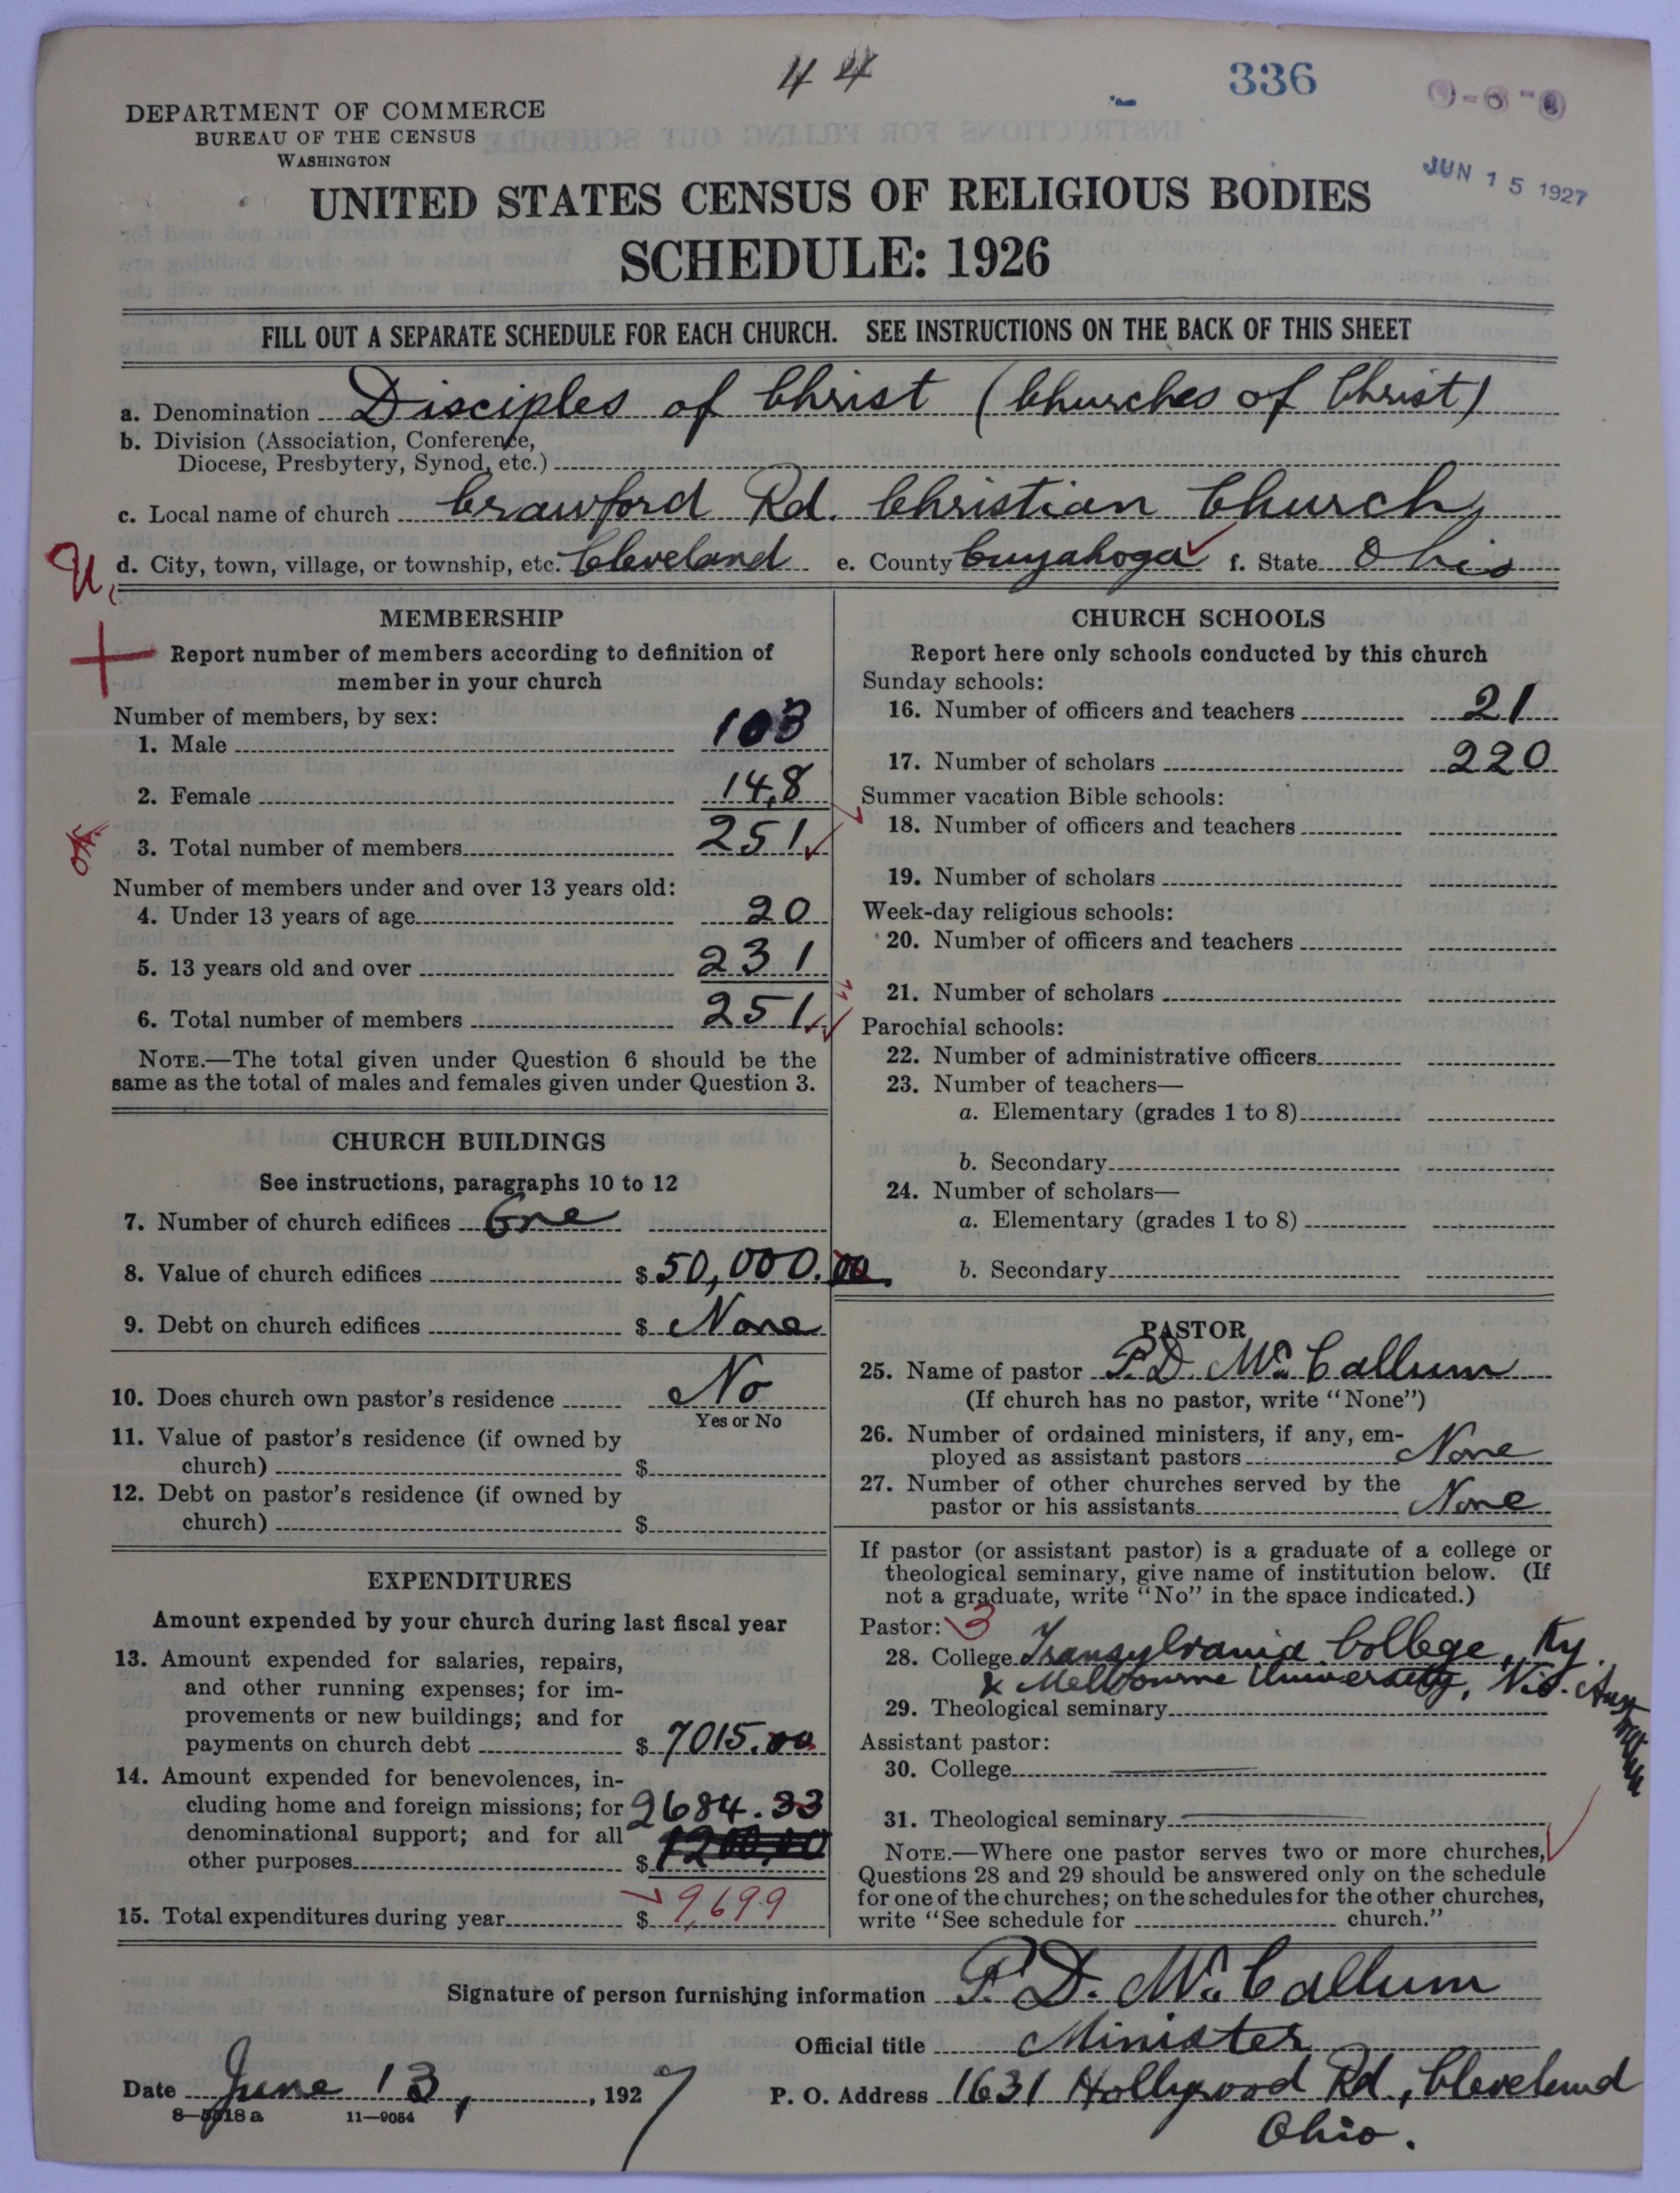 44
336
JUN 15 1927
DEPARTMENT OF COMMERCE
BUREAU OF THE CENSUS
WASHINGTON
UNITED STATES CENSUS OF RELIGIOUS BODIES
SCHEDULE: 1926
FILL OUT A SEPARATE SCHEDULE FOR EACH CHURCH. SEE INSTRUCTIONS ON THE BACK OF THIS SHEET
a. Denomination Disciples of Christ (Churches of Christ)
b. Division (Association, Conference,
Diocese, Presbytery, Synod, etc.)
c. Local name of church Crawford Rd. Christian Church
d. City, town, village, or township, etc. Cleveland e. County Cuyahoga f. State Ohio
MEMBERSHIP
Report number of members according to definition of
member in your church
Number of members, by sex:
1. Male 103
2. Female 148
3. Total number of members 251
Number of members under and over 13 years old:
4. Under 13 years of age 20
5. 13 years old and over 231
6. Total number of members 251
NOTE.—The total given under Question 6 should be the
same as the total of males and females given under Question 3.
CHURCH BUILDINGS
See instructions, paragraphs 10 to 12
7. Number of church edifices One
8. Value of church edifices $50,000.00
9. Debt on church edifices $ None
10. Does church own pastor's residence No
Yes or No
11. Value of pastor's residence (if owned by
church) $
12. Debt on pastor's residence (if owned by
church) $
EXPENDITURES
Amount expended by your church during last fiscal year
13. Amount expended for salaries, repairs,
and other running expenses; for im-
provements or new buildings; and for
payments on church debt $ 7015.00
14. Amount expended for benevolences, in-
cluding home and foreign missions; for 2684.33
denominational support; and for all
other purposes $ 1200.00
15. Total expenditures during year $ 9,699
CHURCH SCHOOLS
Report here only schools conducted by this church
Sunday schools:
16. Number of officers and teachers 21
17. Number of scholars 220
Summer vacation Bible schools:
18. Number of officers and teachers
19. Number of scholars
Week-day religious schools:
20. Number of officers and teachers
21. Number of scholars
Parochial schools:
22. Number of administrative officers
23. Number of teachers—
a. Elementary (grades 1 to 8)
b. Secondary
24. Number of scholars—
a. Elementary (grades 1 to 8)
b. Secondary
PASTOR
25. Name of pastor P. D. McCallum
(If church has no pastor, write "None")
26. Number of ordained ministers, if any, em-
ployed as assistant pastors None
27. Number of other churches served by the
pastor or his assistants None
If pastor (or assistant pastor) is a graduate of a college or
theological seminary, give name of institution below. (If
not a graduate, write "No" in the space indicated.)
Pastor: 3
28. College Transylvania College, Ky.
& Melbourne University, Vic.
29. Theological seminary
Assistant pastor:
30. College
31. Theological seminary
NOTE.—Where one pastor serves two or more churches,
Questions 28 and 29 should be answered only on the schedule
for one of the churches; on the schedules for the other churches,
write "See schedule for church."
Signature of person furnishing information P. D. McCallum
Official title Minister
Date June 13, 1927 P. O. Address 1631 Hollywood Rd., Cleveland
8-5518a 11-9054 Ohio.